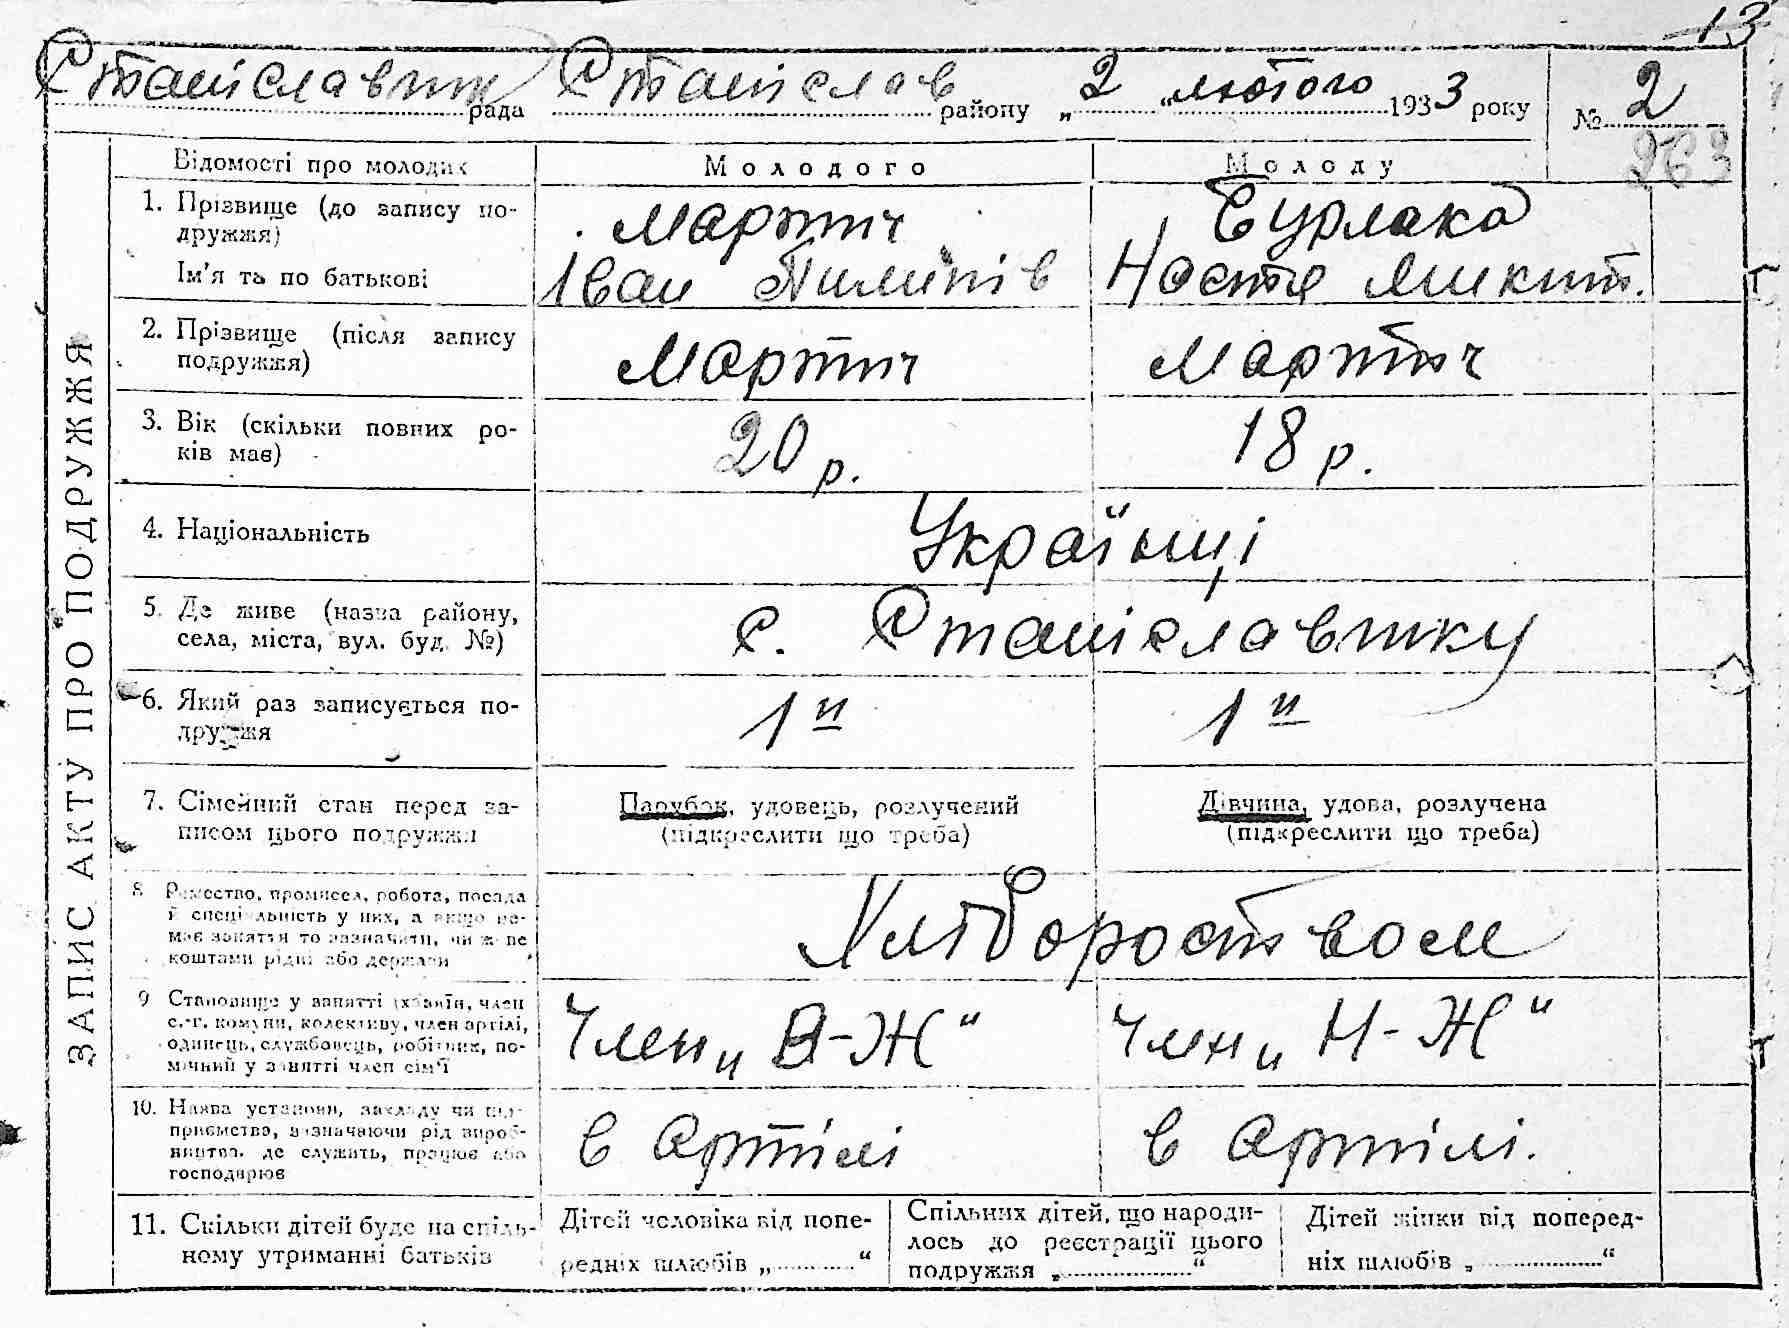 13
Станіславчик рада Станіслав району „2" лютого 1933 року № 2
263
ЗАПИС АКТУ ПРО ПОДРУЖЖЯ
Відомості про молодих
Молодого
Молоду
1. Прізвище (до запису по-
дружжя)
Ім'я та по батькові
Мартич
Іван Пилипів
Бурлака
Настя Микит.
2. Прізвище (після запису
подружжя)
Мартич
Мартич
3. Вік (скільки повних ро-
ків має)
20 р.
18 р.
4. Національність
Українці
5. Де живе (назва району,
села, міста, вул. буд. №)
с. Станіславчику
6. Який раз записується по-
дружжя
1й
1й
7. Сімейний стан перед за-
писом цього подружжя
Парубок, удовець, розлучений
(підкреслити що треба)
Дівчина, удова, розлучена
(підкреслити що треба)
8 Ремество, промисел, робота, посада
й спеціяльність у них, а якщо не-
має заняття то зазначити, чи живе
коштами рідні або держави
Хліборобством
9 Становище у занятті (хазяїн, член
с.-г. комуни, колективу, член артілі,
одинець, службовець, робітник, по-
мічний у занятті член сім'ї
Член „В-Ж"
Член „Н-Ж"
10. Назва установи, закладу чи під-
приємства, зазначаючи рід вироб-
ництва, де служить, працює або
господарює
в артілі
в артілі.
11. Скільки дітей буде на спіль-
ному утриманні батьків
Дітей чоловіка від попе-
редніх шлюбів „............"
Спільних дітей, що народи-
лось до реєстрації цього
подружжя „..................."
Дітей жінки від поперед-
ніх шлюбів „................."